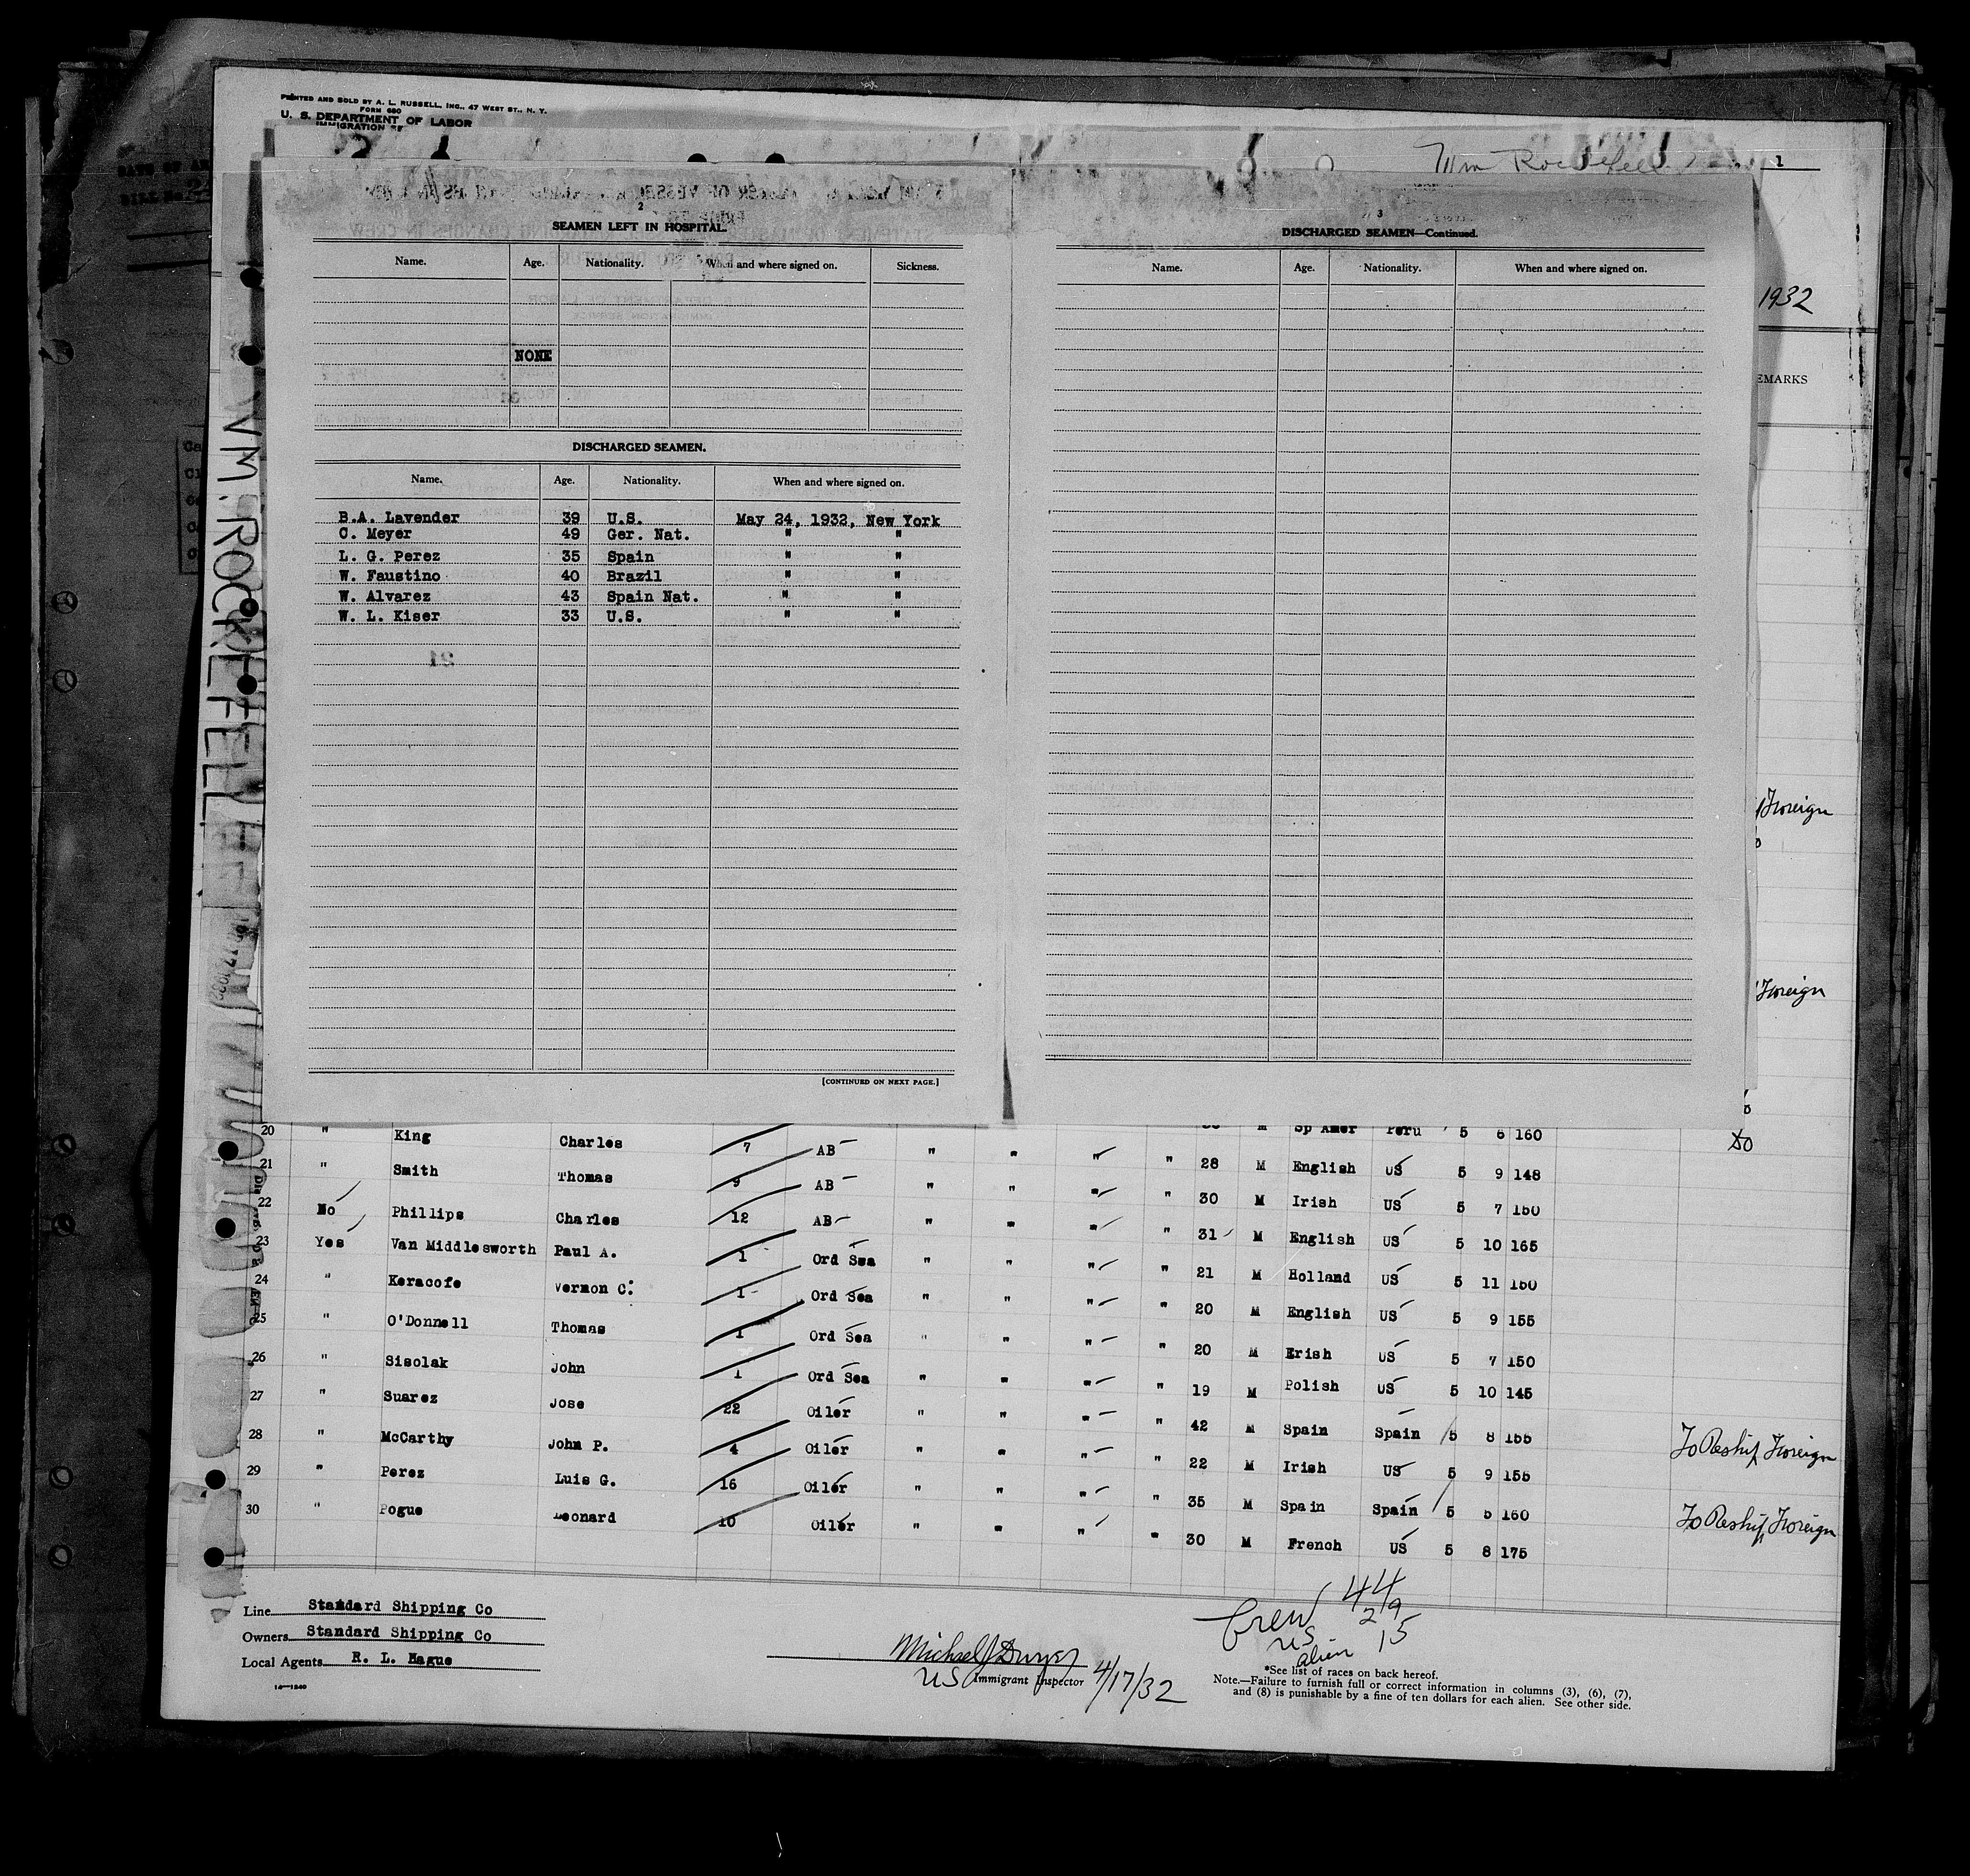 PRINTED AND SOLD BY A. L. RUSSELL, INC., 47 WEST ST., N. Y.
FORM 680
U. S. DEPARTMENT OF LABOR
IMMIGRATION
Wm 1
1932
EMARKS
WM. ROCKEFELLER
2
SEAMEN LEFT IN HOSPITAL.
Name. Age. Nationality. When and where signed on. Sickness.
NONE
DISCHARGED SEAMEN.
Name. Age. Nationality. When and where signed on.
B.A. Lavender 39 U.S. May 24, 1932, New York
C. Meyer 49 Ger. Nat. " "
L. G. Perez 35 Spain " "
W. Faustino 40 Brazil " "
W. Alvarez 43 Spain Nat. " "
W. L. Kiser 33 U.S. " "
21
[CONTINUED ON NEXT PAGE.]
3
DISCHARGED SEAMEN—Continued.
Name. Age. Nationality. When and where signed on.
Foreign
Foreign
M Sp Amer Peru 5 6 160 do
20 " King Charles 7 AB " " " " 28 M English US 5 9 148
21 " Smith Thomas 9 AB " " " " 30 M Irish US 5 7 150
22 No Phillips Charles 12 AB " " " " 31 M English US 5 10 165
23 Yes Van Middlesworth Paul A. 1 Ord Sea " " " " 21 M Holland US 5 11 150
24 " Keracofe Vermon C. 1 Ord Sea " " " " 20 M English US 5 9 155
25 " O'Donnell Thomas 1 Ord Sea " " " " 20 M Erish US 5 7 150
26 " Sisolak John 1 Ord Sea " " " " 19 M Polish US 5 10 145
27 " Suarez Jose 22 Oiler " " " " 42 M Spain Spain 5 8 155 To Reship Foreign
28 " McCarthy John P. 4 Oiler " " " " 22 M Irish US 5 9 155
29 " Perez Luis G. 16 Oiler " " " " 35 M Spain Spain 5 5 160 To Reship Foreign
30 " Pogue Leonard 10 Oiler " " " " 30 M French US 5 8 175
Line Standard Shipping Co
Owners Standard Shipping Co
Local Agents R. L. Hague
14—1240
Michael J Dwyer
US Immigrant Inspector 4/17/32
Crew 44
US 29
alien 15
*See list of races on back hereof.
Note.—Failure to furnish full or correct information in columns (3), (6), (7),
and (8) is punishable by a fine of ten dollars for each alien. See other side.